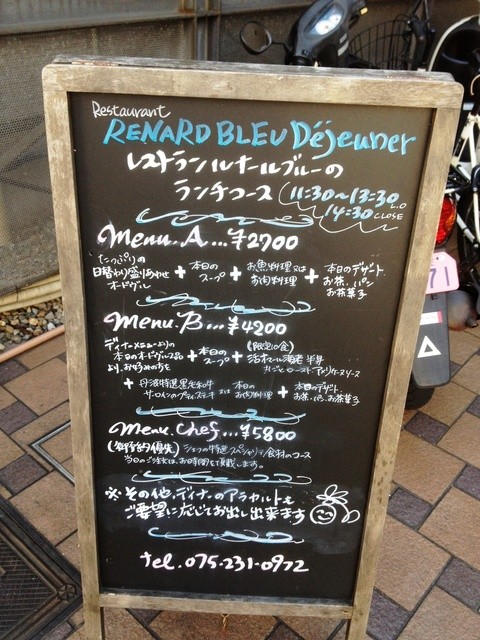 Restaurant
RENARD BLEU Déjeuner
レストランルナールブルーの
ランチコース (11:30~13:30 L.O
14:30 CLOSE
Menu.A...¥2700
たっぷりの
日替わり盛り合わせ
オードヴル
+ 本日の
スープ
+ お魚料理又は
お肉料理
+ 本日のデザート
お茶、パン
お茶菓子
Menu.B...¥4200
ディナーメニューより
本日のオードヴル2品
より、お好みの方を
+ 本日の
スープ
+ (限定10食)
活オマール海老 半身
丸ごとロースト アメリケーヌソース
+ 丹波特選黒毛和牛
サーロインのプティステーキ または 本日の
お肉料理
+ 本日のデザート
お茶、パン、お茶菓子
Menu.chef...¥5800
(御予約優先) シェフの特選スペシャリテ食材のコース
当日のご注文は、お時間を頂戴します。
※その他、ディナーのアラカルトも
ご要望に応じてお出し出来ます
tel.075-231-0972
71